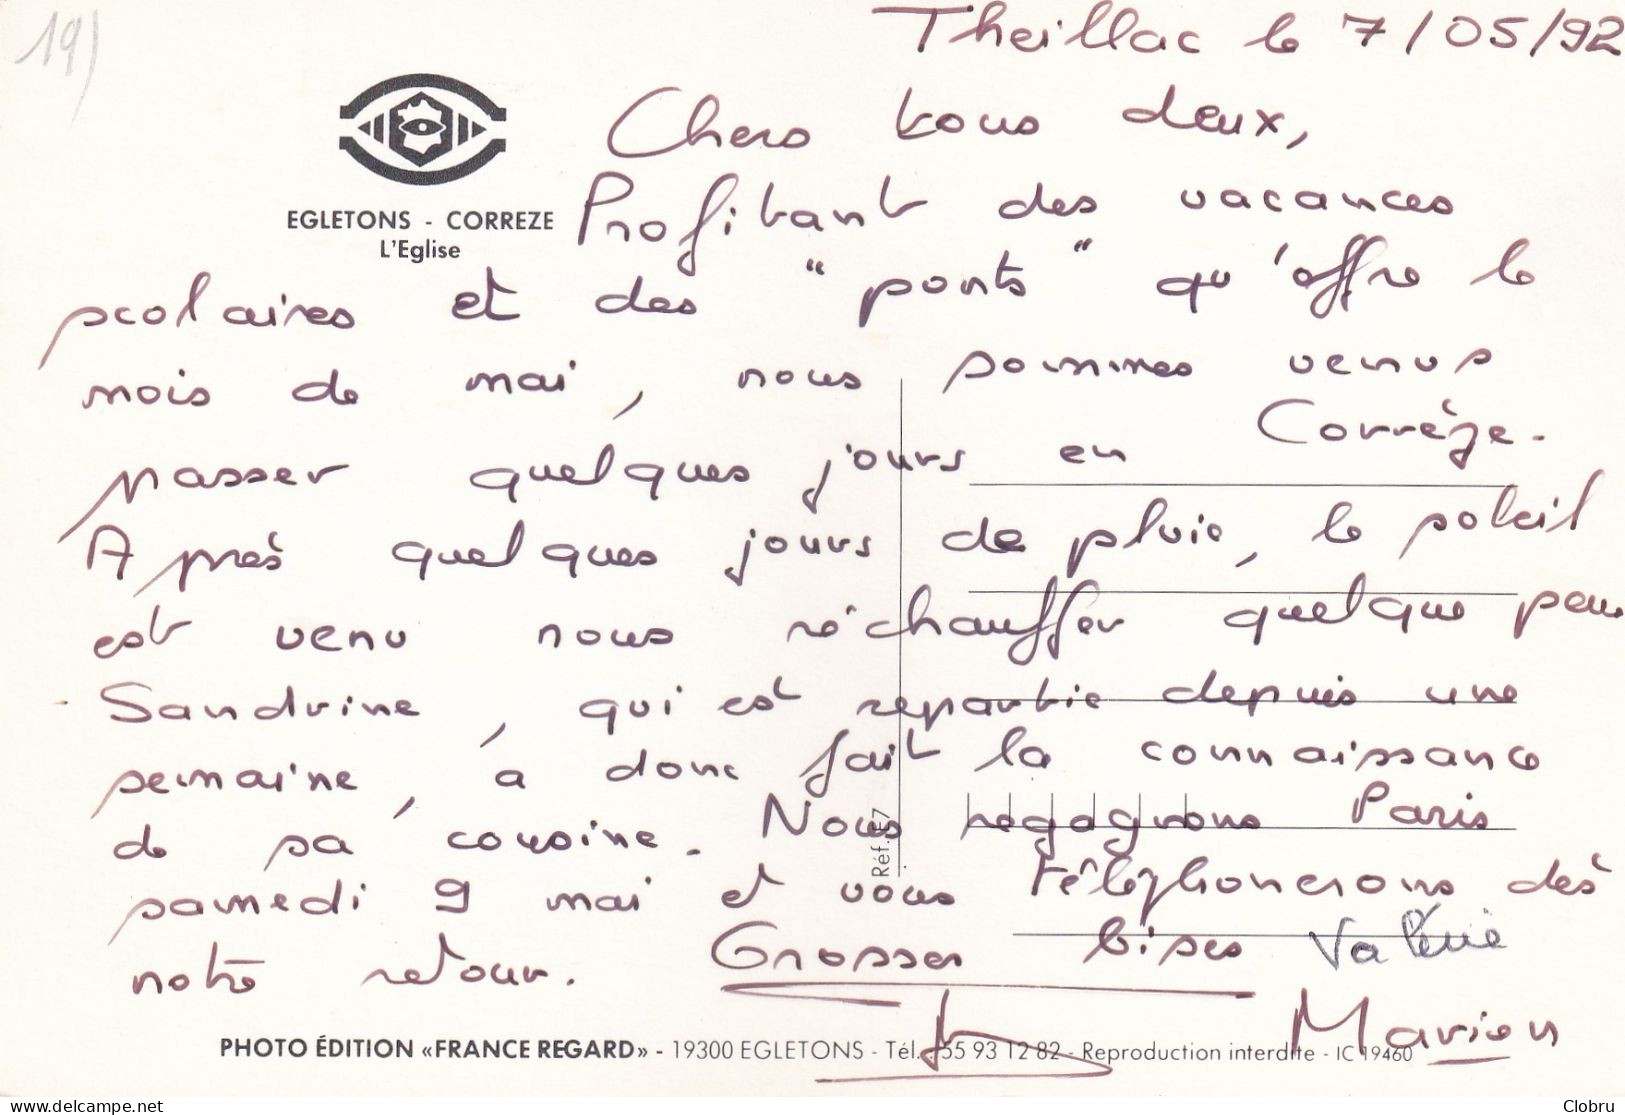 19)
Theillac le 7/05/92
EGLETONS - CORREZE
L'Eglise
Chers tous deux,
Profitant des vacances
scolaires et des "ponts" qu'offre le
mois de mai, nous sommes venus
passer quelques jours en Corrèze.
Après quelques jours de pluie, le soleil
est venu nous réchauffer quelque peu
Sandrine, qui est repartie depuis une
semaine, a donc fait la connaissance
de sa cousine. Nous regagnons Paris
samedi 9 mai et vous téléphonerons dès
notre retour. Grosses bises Valérie
Marion
Réf. E7
PHOTO ÉDITION «FRANCE REGARD» - 19300 EGLETONS - Tél. 55 93 12 82 - Reproduction interdite - IC 19460
delcampe.net
Clobru